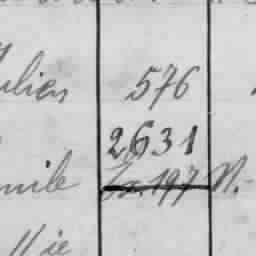 ulien 576
2631
mile Ex. 197 N.
11 ie